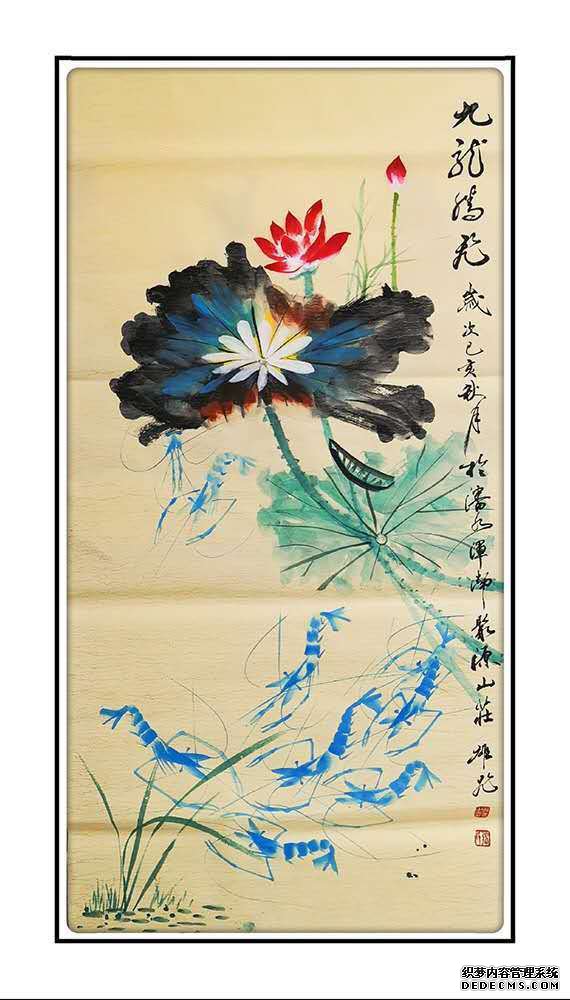 九龍騰飛 歲次己亥秋月 於瀋水渾 源山莊 雄飛
织梦内容管理系统
DEDECMS.COM